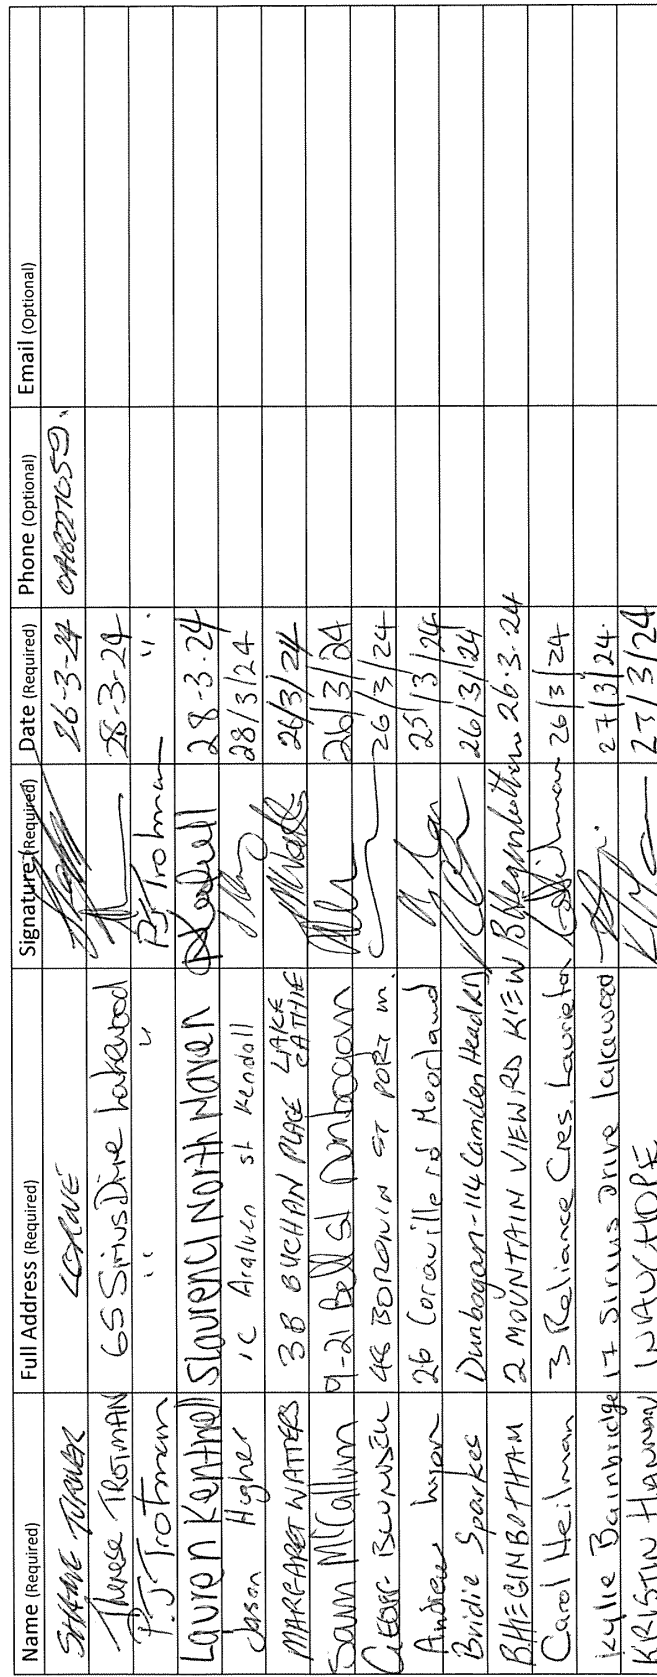 Name (Required) Full Address (Required) Signature (Required) Date (Required) Phone (Optional) Email (Optional)
SHANE TURNER LORNE 26-3-24
Therese TROTMAN 65 Sirius Drive Lakewood 28-3-24
P.J Trotman " " PJ Trotman ".
Lauren Kentwell North Haven 28-3-24
Jason st Kendall 28/3/24
MARGARET WATTERS 3B BUCHAN PLACE LAKE CATHIE 26/3/24
Sam McCallum 9-21 Bell st Dunbogan 26/3/24
48 BORONIA ST PORT M. 26/3/24
Andrew Lyon 26 Coraville rd Moorland 25/3/24
Bridie Sparkes Dunbogan-114 Camden Head Rd 26/3/24
B.HEGINBOTHAM 2 MOUNTAIN VIEW RD KIEW BHeginbotham 26.3.24
Carol Heilman 3 Reliance Cres. Laurieton 26/3/24
Kylie Bainbridge 17 Sirius Drive Lakewood 27/3/24.
KRISTIN HANNAN WAUCHOPE 27/3/24